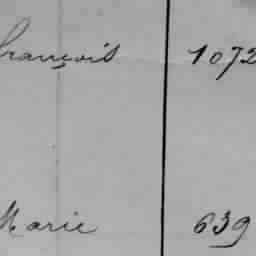 François 1072
Marie 639